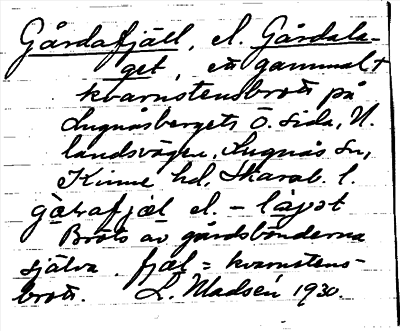 Gårdafjäll, el. Gårdala-
get, ett gammalt
kvarnstensbrott på
Lugnåsbergets Ö. sida, N.
landsvägen, Lugnås sn,
Kinne hd, Skarab. l.
gɑḷafjæl el. - lɑ̄jət
Bröts av gårdsbönderna
själva. fjæl = kvarnstens-
brott. L. Madsén 1930.